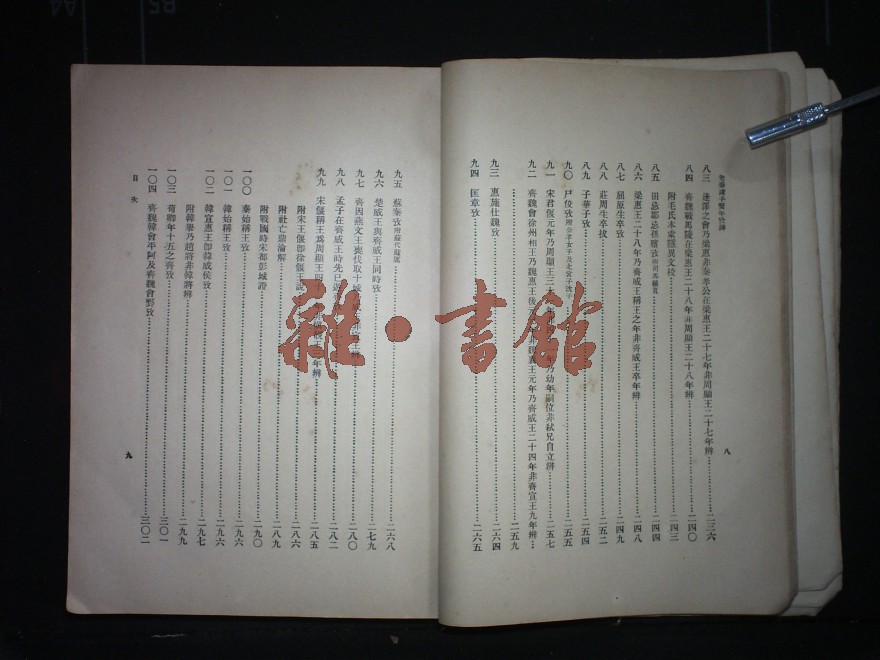 先秦諸子繫年攷辨
八三 逢澤之會乃梁惠王非秦孝公在梁惠王二十七年非周顯王二十七年辨 二三六
八四 齊魏戰馬陵在梁惠王二十八年非周顯王二十八年辨 二四〇
附毛氏本 二四三
八五 田忌鄒忌孫臏攷 二四四
八六 梁惠王二十八年乃齊威王稱王之年非齊威王卒年辨 二四八
八七 屈原生卒攷 二四九
八八 莊周生卒攷 二五二
八九 子華子攷 二五四
九〇 尸佼攷 二五五
九一 宋君偃元年乃周顯王三十 年乃幼年嗣位非弒兄自立辨 二五七
九二 齊魏會徐州相王乃魏惠王後元 魏惠王元年乃齊威王二十四年非齊宣王九年辨
二五九
九三 惠施仕魏攷 二六四
九四 匡章攷 二六五
八
九五 蘇秦攷附蘇代蘇厲 二六八
九六 楚威王與齊威王同時攷 二七九
九七 齊因燕文王喪伐取十城 辨 二八〇
九八 孟子在齊威王時先已遊齊 二八二
九九 宋偃稱王為周顯王四十 年辨 二八五
附宋王偃即徐偃王說 二八六
附社亡鼎淪解 二八九
附戰國時宋都彭城證 二九〇
一〇〇 秦始稱王攷 二九六
一〇一 韓始稱王攷 二九六
一〇二 韓宣惠王即韓威侯攷 二九七
附韓舉乃趙將非韓將辨 二九九
一〇三 荀卿年十五之齊攷 三〇一
一〇四 齊魏韓會平阿及齊魏會鄄攷 三〇二
目次
九
雜·書館